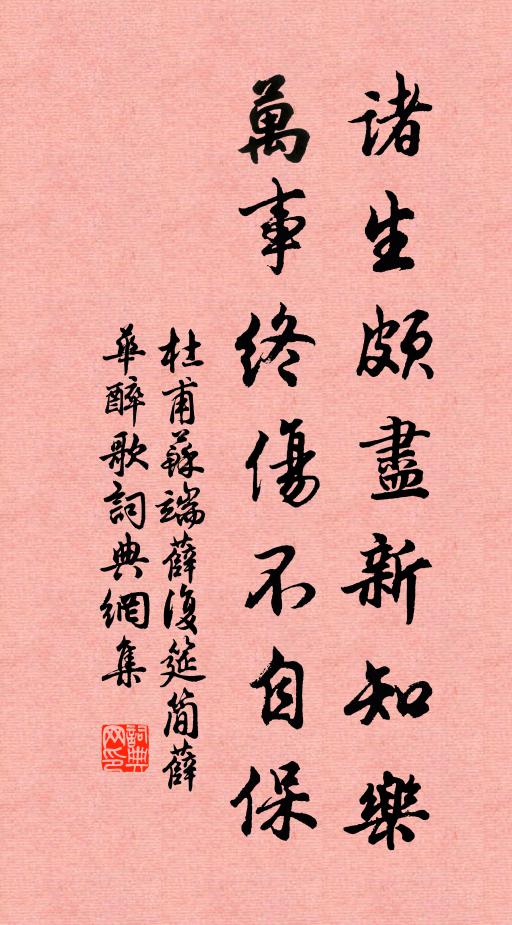 諸生頗盡新知樂
萬事終傷不自保
杜甫蘇端薛復筵簡薛
華醉歌詞典網集
詞典网印